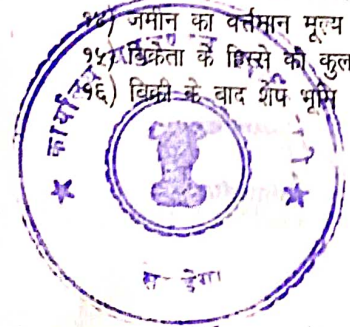 १४) जमीन का वर्तमान मूल्य
१५) विक्रेता के हिस्से की कुल
१६) विक्री के वाद शेष भूमि
कार्यालय